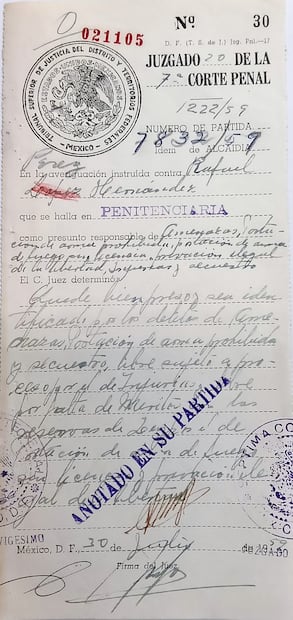 021105
Nº 30
D. F. (T. S. de J.) Jzg. Pnl.—17
TRIBUNAL SUPERIOR DE JUSTICIA DEL DISTRITO Y TERRITORIOS FEDERALES
MEXICO
JUZGADO 20 DE LA
7a CORTE PENAL
1222/59
NUMERO DE PARTIDA
7832/59
Idem de ALCAIDIA
Perez
En la averiguación instruida contra Rafael
Lopez Hernandez
que se halla en PENITENCIARIA
como presunto responsable de amenazas, Portación
de arma prohibida, portación de arma
de fuego sin licencia, privación ilegal
de la libertad, injurias y secuestro
El C. Juez determinó:
Quede bien preso y sea identificado
por los delitos de Amenazas,
Portación de arma prohibida
y secuestro, libre sujeto a proceso
por el de Injurias, libre
por falta de Meritos con las
reservas de Ley por el de
Portación de arma de fuego
sin licencia y privación ilegal
de libertad
ANOTADO EN SU PARTIDA
VIGESIMO
México, D. F., 30 de Julio de 1959
Firma del Juez.